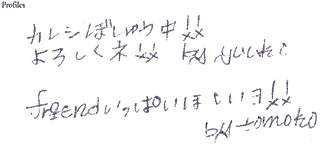 Profiles
カレシぼしゅう中!!
よろしくネ!! by
friendいっぱいほしいヨ!!
by tomoko